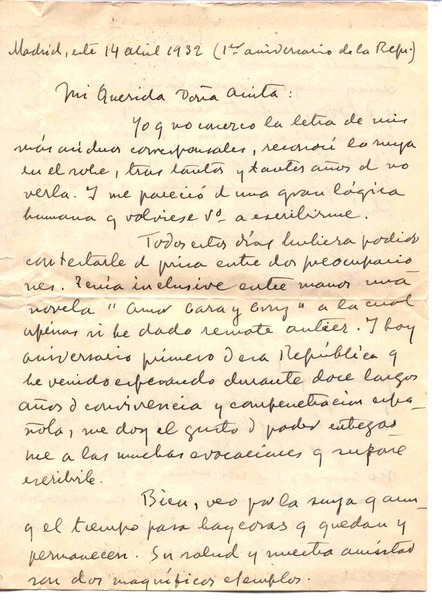 Madrid, este 14 abril 1932 (1er aniversario de la Rep.)
Mi Querida Doña Anita:
Yo q no conozco la letra de mis
más asiduos corresponsales, reconocí la suya
en el sobre, tras tantos y tantos años d no
verla. I me pareció d una gran lógica
humana q volviese Vd a escribirme.
Todos estos días hubiera podido
contestarle d prisa entre dos preocupacio
nes. Tenía inclusive entre manos una
novela " Amor Cara y Cruz " a la cual
apenas si he dado remate anteayer. I hoy
aniversario primero d esta República q
he venido esperando durante doce largos
años d convivencia y compenetración espa
ñola, me doy el gusto d poder entregar
me a las muchas evocaciones q supone
escribirle.
Bien, veo por la suya q aun
q el tiempo pasa hay cosas q quedan y
permanecen. Su salud y nuestra amistad
son dos magníficos ejemplos.